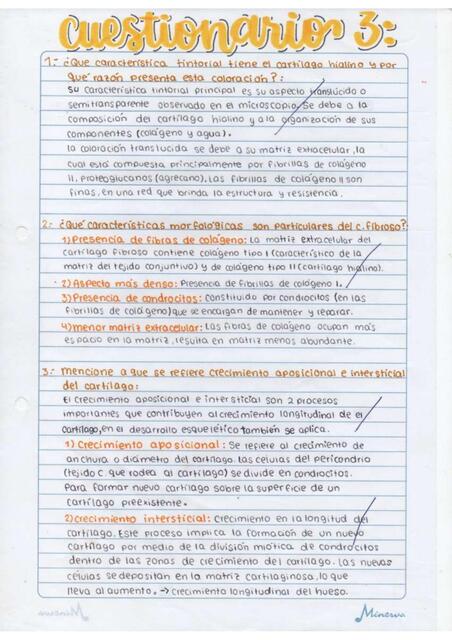 Cuestionario 3:
1.- ¿Que característica tintorial tiene el cartílago hialino y por
qué razón presenta esta coloración?:
Su característica tintorial principal es su aspecto translúcido o
semitransparente observado en el microscopio. Se debe a la
composición del cartílago hialino y a la organización de sus
componentes (colágeno y agua).
La coloración translucida se debe a su matriz extracelular, la
cual está compuesta principalmente por fibrillas de colágeno
II, proteoglucanos (agrecano). Las fibrillas de colágeno II son
finas, en una red que brinda la estructura y resistencia.
2.- ¿Qué características morfológicas son particulares del c. fibroso?
1) Presencia de fibras de colágeno: La matriz extracelular del
cartílago fibroso contiene colágeno tipo I (característico de la
matriz del tejido conjuntivo) y de colágeno tipo II (cartílago hialino).
2) Aspecto más denso: Presencia de fibrillas de colágeno I.
3) Presencia de condrocitos: Constituido por condrocitos (en las
fibrillas de colágeno) que se encargan de mantener y reparar.
4) menor matriz extracelular: Las fibras de colágeno ocupan más
espacio en la matriz, resulta en matriz menos abundante.
3.- Mencione a que se refiere crecimiento aposicional e intersticial
del cartílago:
El crecimiento aposicional e intersticial son 2 procesos
importantes que contribuyen al crecimiento longitudinal de el
cartílago, en el desarrollo esquelético también se aplica.
1) Crecimiento aposicional: Se refiere al crecimiento de
anchura o diámetro del cartílago. Las células del pericondrio
(tejido C. que rodea al cartílago) se divide en condrocitos.
Para formar nuevo cartílago sobre la superficie de un
cartílago preexistente.
2) Crecimiento intersticial: Crecimiento en la longitud del
cartílago. Este proceso implica la formación de un nuevo
cartílago por medio de la división miótica de condrocitos
dentro de las zonas de crecimiento del cartílago. Las nuevas
células se depositan en la matriz cartilaginosa, lo que
lleva al aumento. → crecimiento longitudinal del hueso.
Minerva